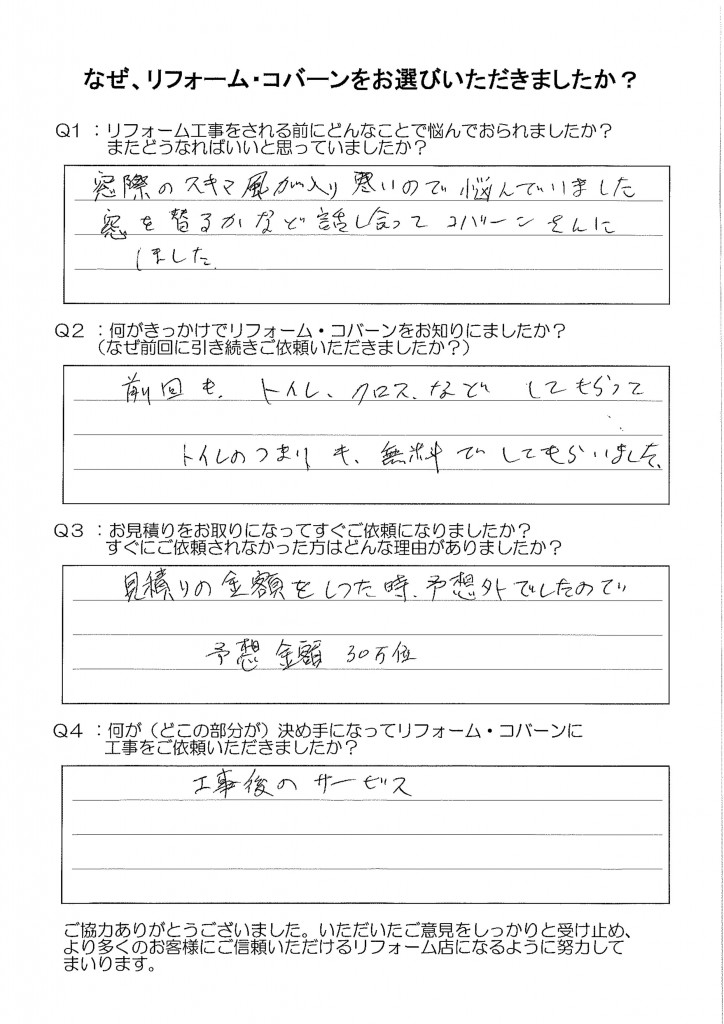 なぜ、リフォーム・コバーンをお選びいただきましたか？
Q1 ：リフォーム工事をされる前にどんなことで悩んでおられましたか？
またどうなればいいと思っていましたか？
窓際のスキマ風が入り寒いので悩んでいました
窓を替るかなど話し合ってコバーンさんに
しました
Q2 ：何がきっかけでリフォーム・コバーンをお知りにましたか？
（なぜ前回に引き続きご依頼いただきましたか？）
前回も、トイレ、クロス、などしてもらって
トイレのつまりも、無料でしてもらいました、
Q3 ：お見積りをお取りになってすぐご依頼になりましたか？
すぐにご依頼されなかった方はどんな理由がありましたか？
見積りの金額をしった時、予想外でしたので
予想金額 30万位
Q4 ：何が（どこの部分が）決め手になってリフォーム・コバーンに
工事をご依頼いただきましたか？
工事後のサービス
ご協力ありがとうございました。いただいたご意見をしっかりと受け止め、
より多くのお客様にご信頼いただけるリフォーム店になるように努力して
まいります。